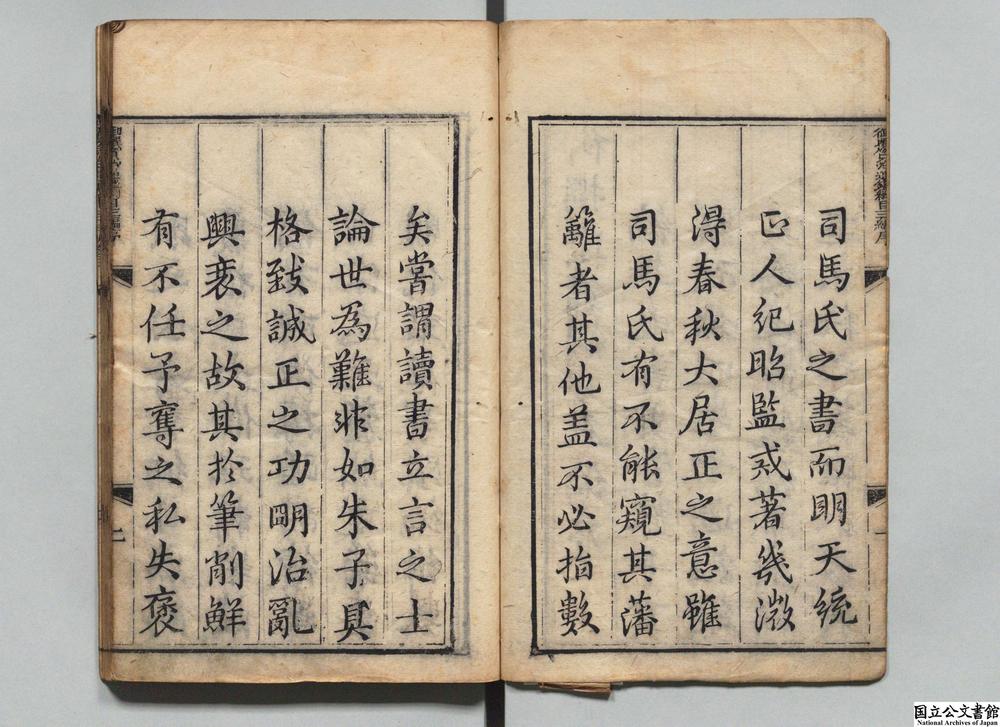 司馬氏之書而明天統
正人紀昭監戒著㡬微
得春秋大居正之意雖
司馬氏有不能窺其藩
籬者其他盖不必指數
矣嘗謂讀書立言之士
論世為難非如朱子具
格致誠正之功明治亂
興衰之故其於筆削鮮
有不任予奪之私失褒
国立公文書館
National Archives of Japan